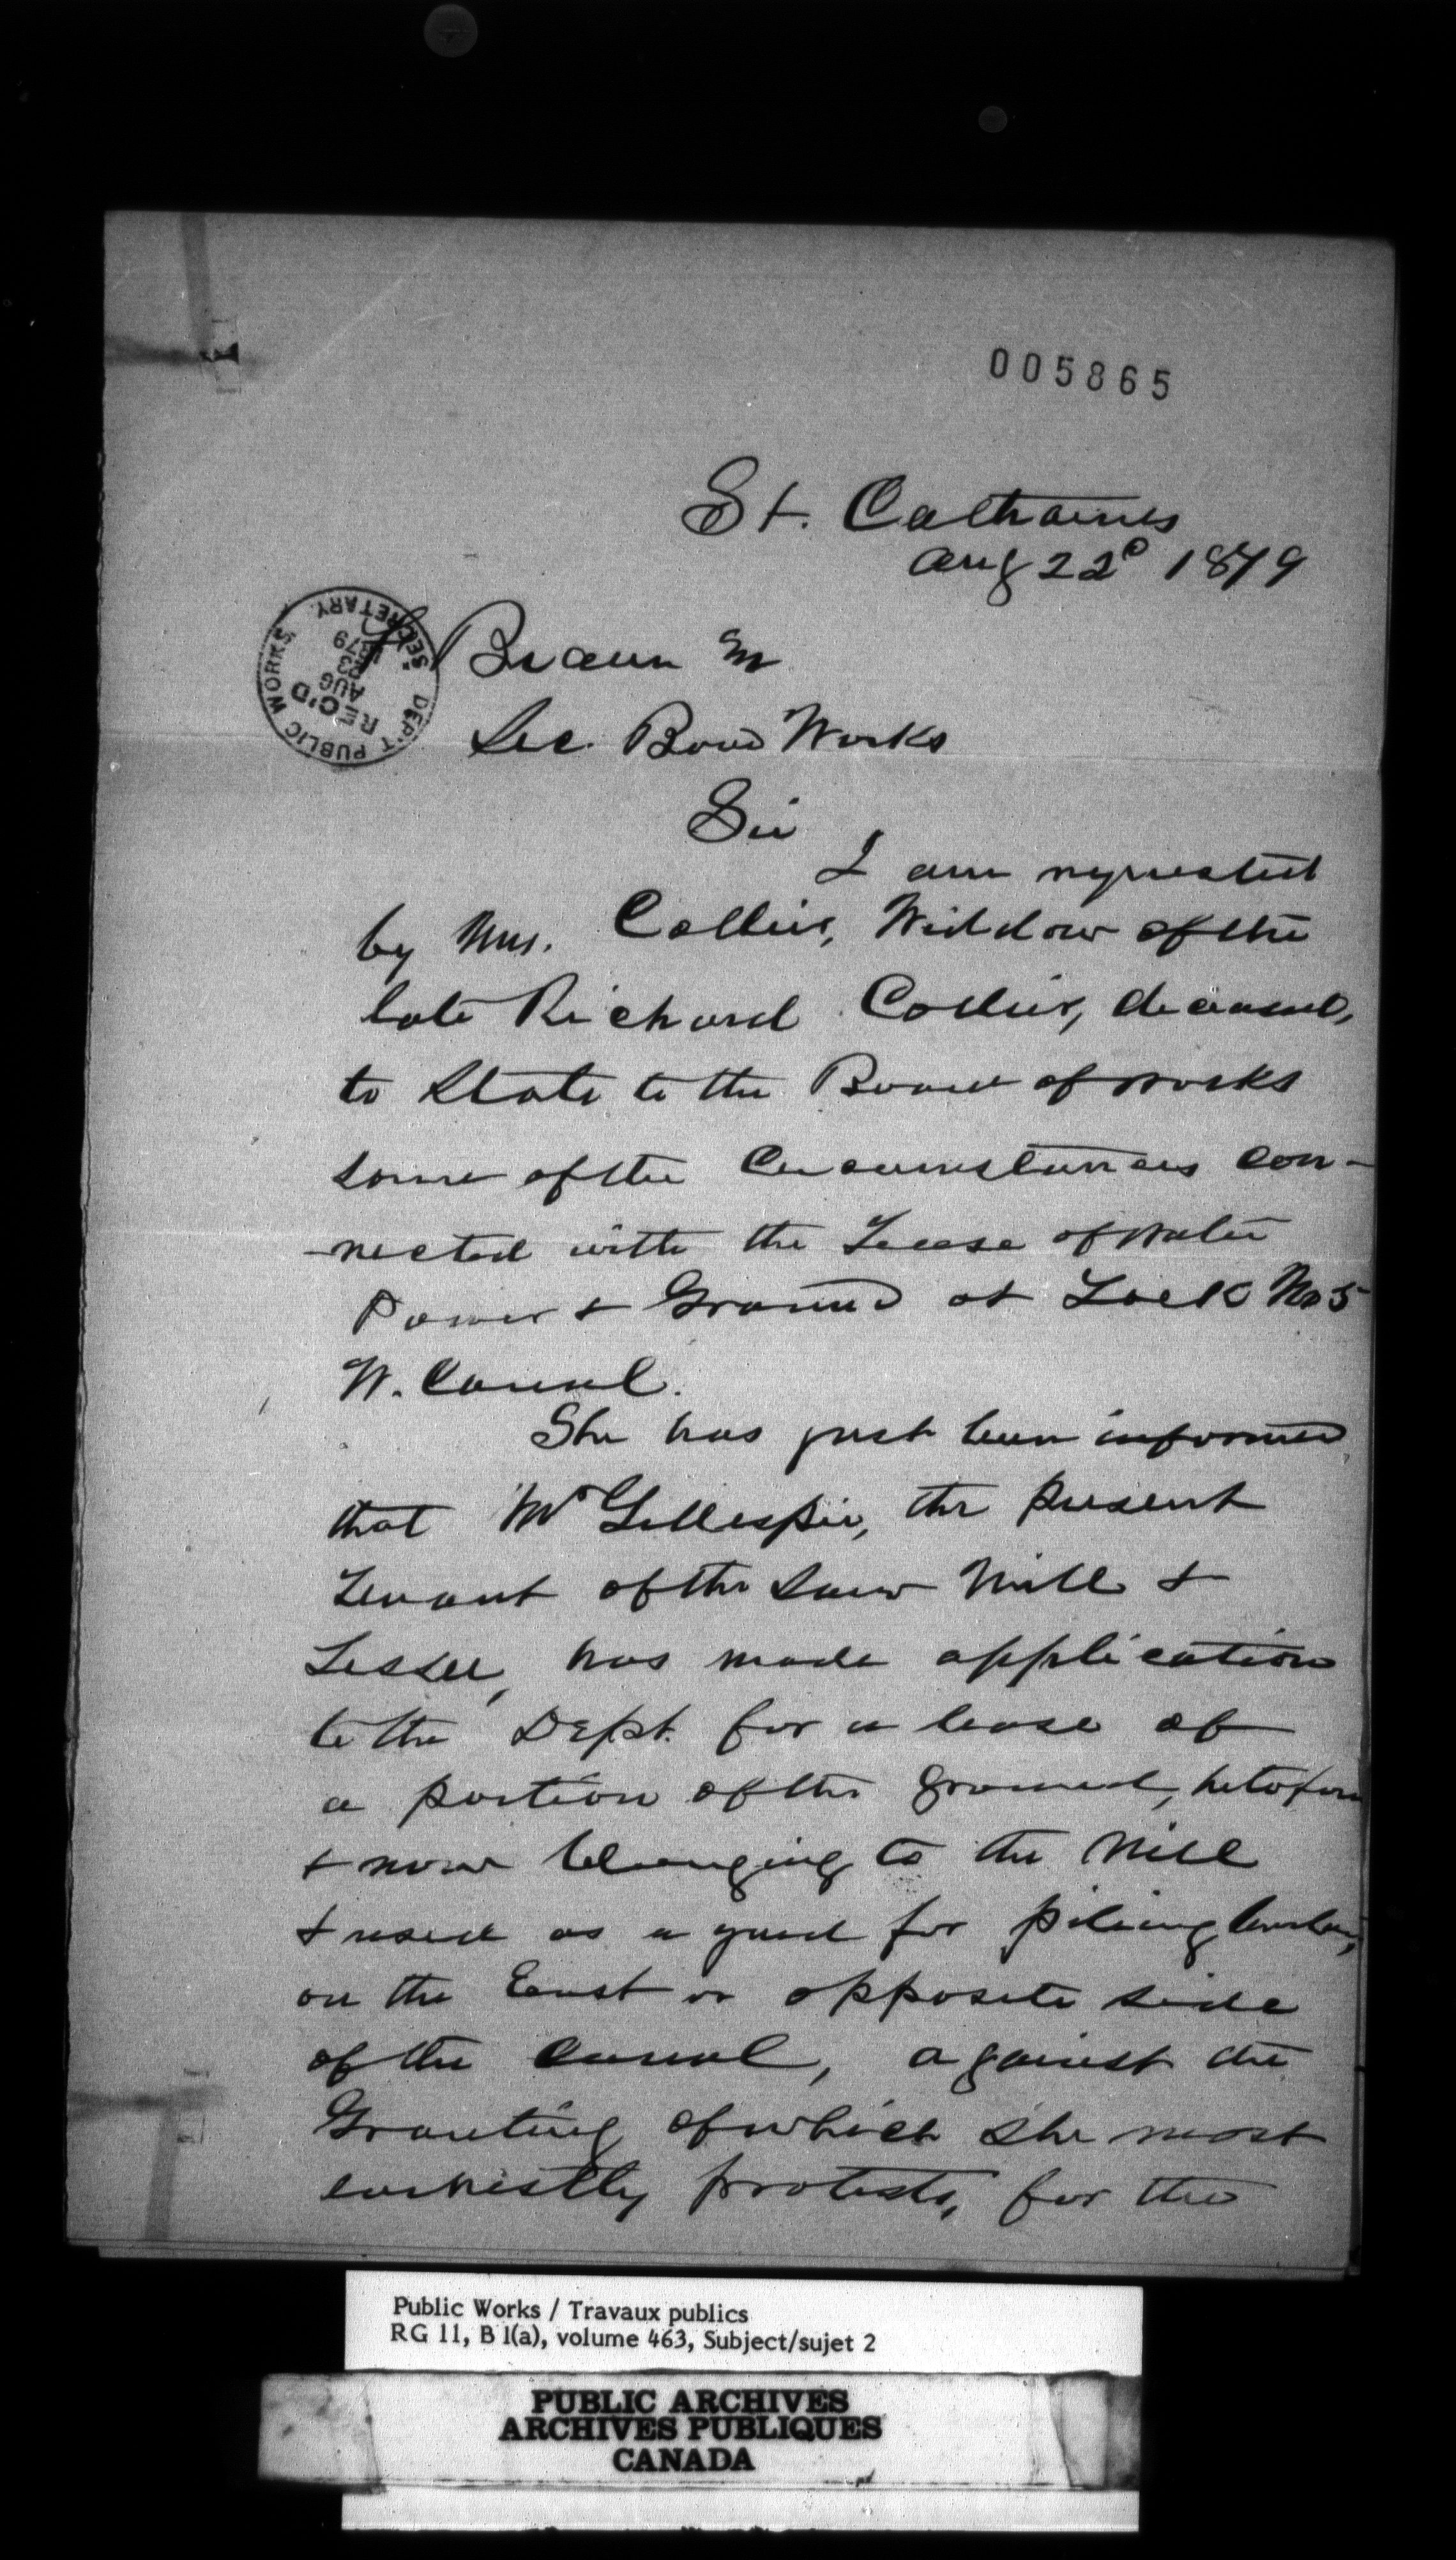 005865
St. Catharines
Aug 22d 1879
DEP'T PUBLIC WORKS
SECRETARY
REC'D
AUG
23
1879
F Braun Esq
Sec. Board Works
Sir
I am requested
by Mrs. Collier, Widdow of the
late Richard Collier, deceased,
to State to the Board of works
some of the Circumstances con-
-nected with the Lease of Water
Power & Ground at Lock No 5
W. Canal.
She has just been informed
that Mr Gillespie, the present
Tenant of the Saw Mill &
Lessee, has made application
to the Dept. for a lease of
a portion of the ground, hetofore
& now belonging to the Mill
& used as a yard for piling lumber,
on the East or opposite side
of the Canal, against the
Granting of which she most
earnestly protests, for the
Public Works / Travaux publics
RG 11, B 1(a), volume 463, Subject/sujet 2
PUBLIC ARCHIVES
ARCHIVES PUBLIQUES
CANADA